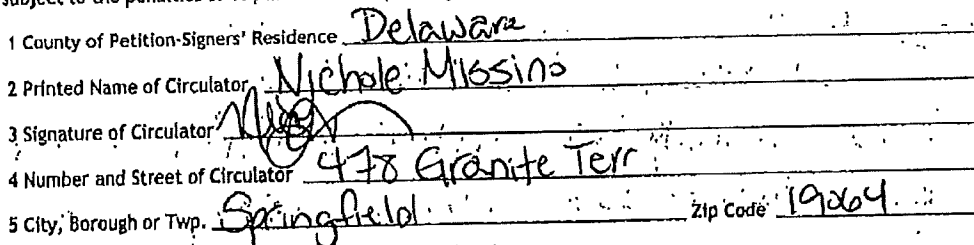 1 County of Petition-Signers' Residence Delaware
2 Printed Name of Circulator Nichole Missino
3 Signature of Circulator
4 Number and Street of Circulator 478 Granite Terr
5 City, Borough or Twp. Springfield Zip Code 19064